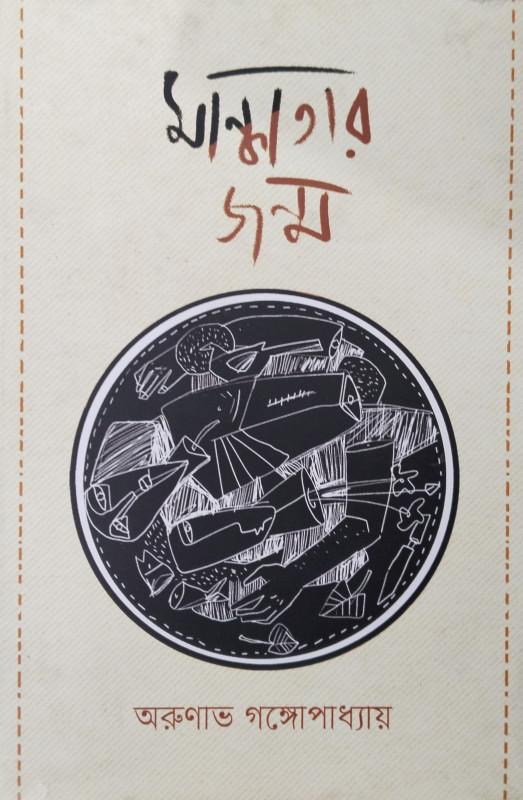 মান্ধাতার
জন্ম
অরুণাভ গঙ্গোপাধ্যায়